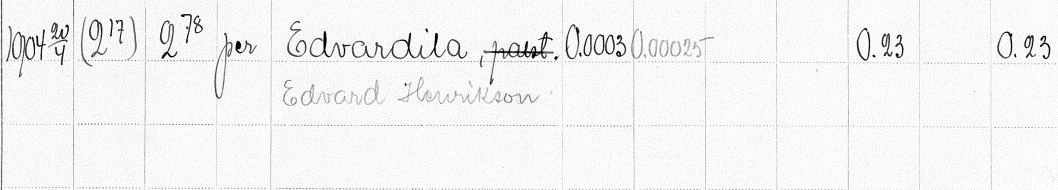 1904 20/4 (2¹⁷) 2⁷⁸ per Edvardila, palst. 0.0003 0.00025 0.23 0.23
Edvard Henrikson